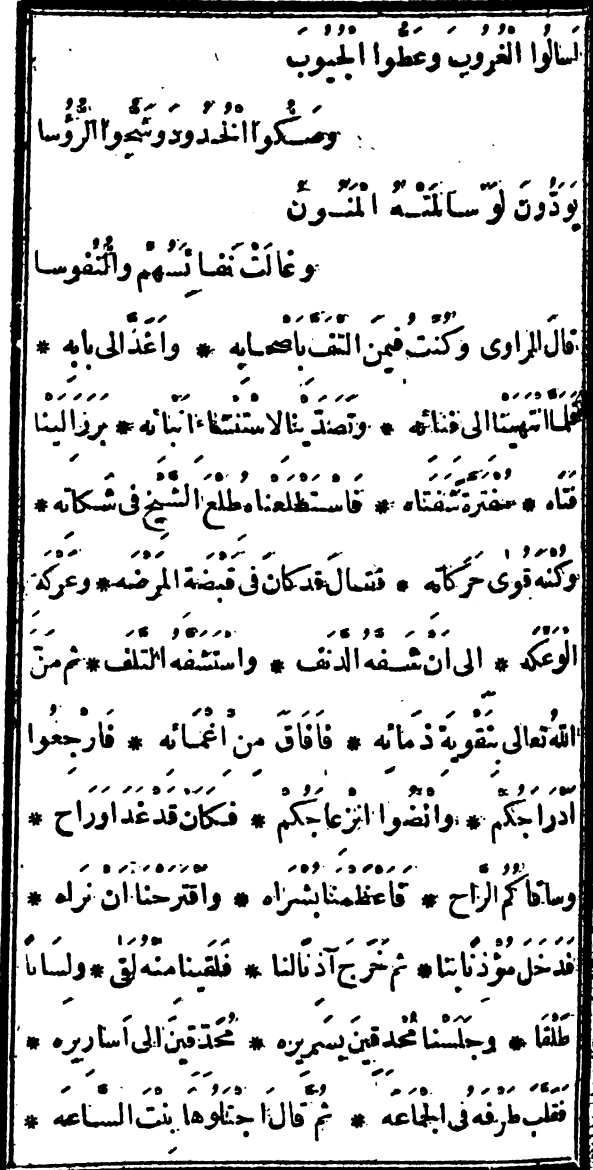 لَسَالُوا الْغُرُوبَ وَعَطُّوا الْجُيُوبَ
وَصَكُّوا الْخُدُودَ وَشَجُّوا الرُّؤُسَا
يَوَدُّونَ لَوْ سَالَمَتْهُ الْمَنُونُ
وَغَالَتْ نَفَائِسَهُمْ وَالنُّفُوسَا
قَالَ الراوى وَكُنْتُ فِيمَنِ الْتَفَّ بِأَصْحَابِهِ * وَأَغَذَّ الى بَابِهِ *
فَلَمَّا انْتَهَيْنَا الى فِنَائِهِ * وَتَصَدَّيْنَا لِاسْتِنْشَاءِ اَنْبَائِهِ * بَرَزَ اِلَيْنَا
فَتَاه * مُفْتَرَّةً شَفَتَاه * فَاسْتَطْلَعْنَاه طُلْعَ الشَّيْخِ فى شَكَاتِه *
وَكُنْهَ قُوَى حَرَكَاتِه * فقال قد كَانَ فى قَبْضَةِ الْمَرْضَه * وَعَرْكَةِ
الْوَعْكَه * الى اَنْ شَفَّهُ الدَّنَفُ * وَاسْتَشَفَّهُ التَّلَفُ * ثم مَنَّ
اللهُ تعالى بِتَقْوِيَةِ ذَمَائِه * فَاَفَاقَ مِنْ اِغْمَائِه * فَارْجِعُوا
اَدْرَاجَكُمْ * وَانْضُوا انْزِعَاجَكُمْ * فَكَاَنْ قَدْ غَدَا وَرَاح *
وَسَاقَاكُمُ الرَّاح * فَاَعْظَمْنَا بُشْرَاه * وَاقْتَرَحْنَا اَنْ نَرَاه *
فَدَخَلَ مُؤْذِنًا بِنَا * ثم خَرَجَ آذِنًا لنا * فَلَقِينَا مِنْهُ لَقًى * وَلِسَانًا
طَلْقًا * وَجَلَسْنَا مُحْدِقِينَ بِسَرِيرِه * مُحَدِّقِينَ الى اَسَارِيرِه *
فَقَلَّبَ طَرْفَهُ فى الْجَمَاعَه * ثُمَّ قالَ اجْتَلُوهَا بِنْتَ السَّاعَه *